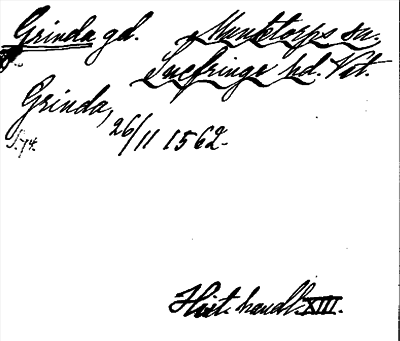 Grinda gd. Munktorps sn.
Snefringe hd. Vst.
Grinda, 26/11 1562.
S. 74.
Hist. handl. XIII.